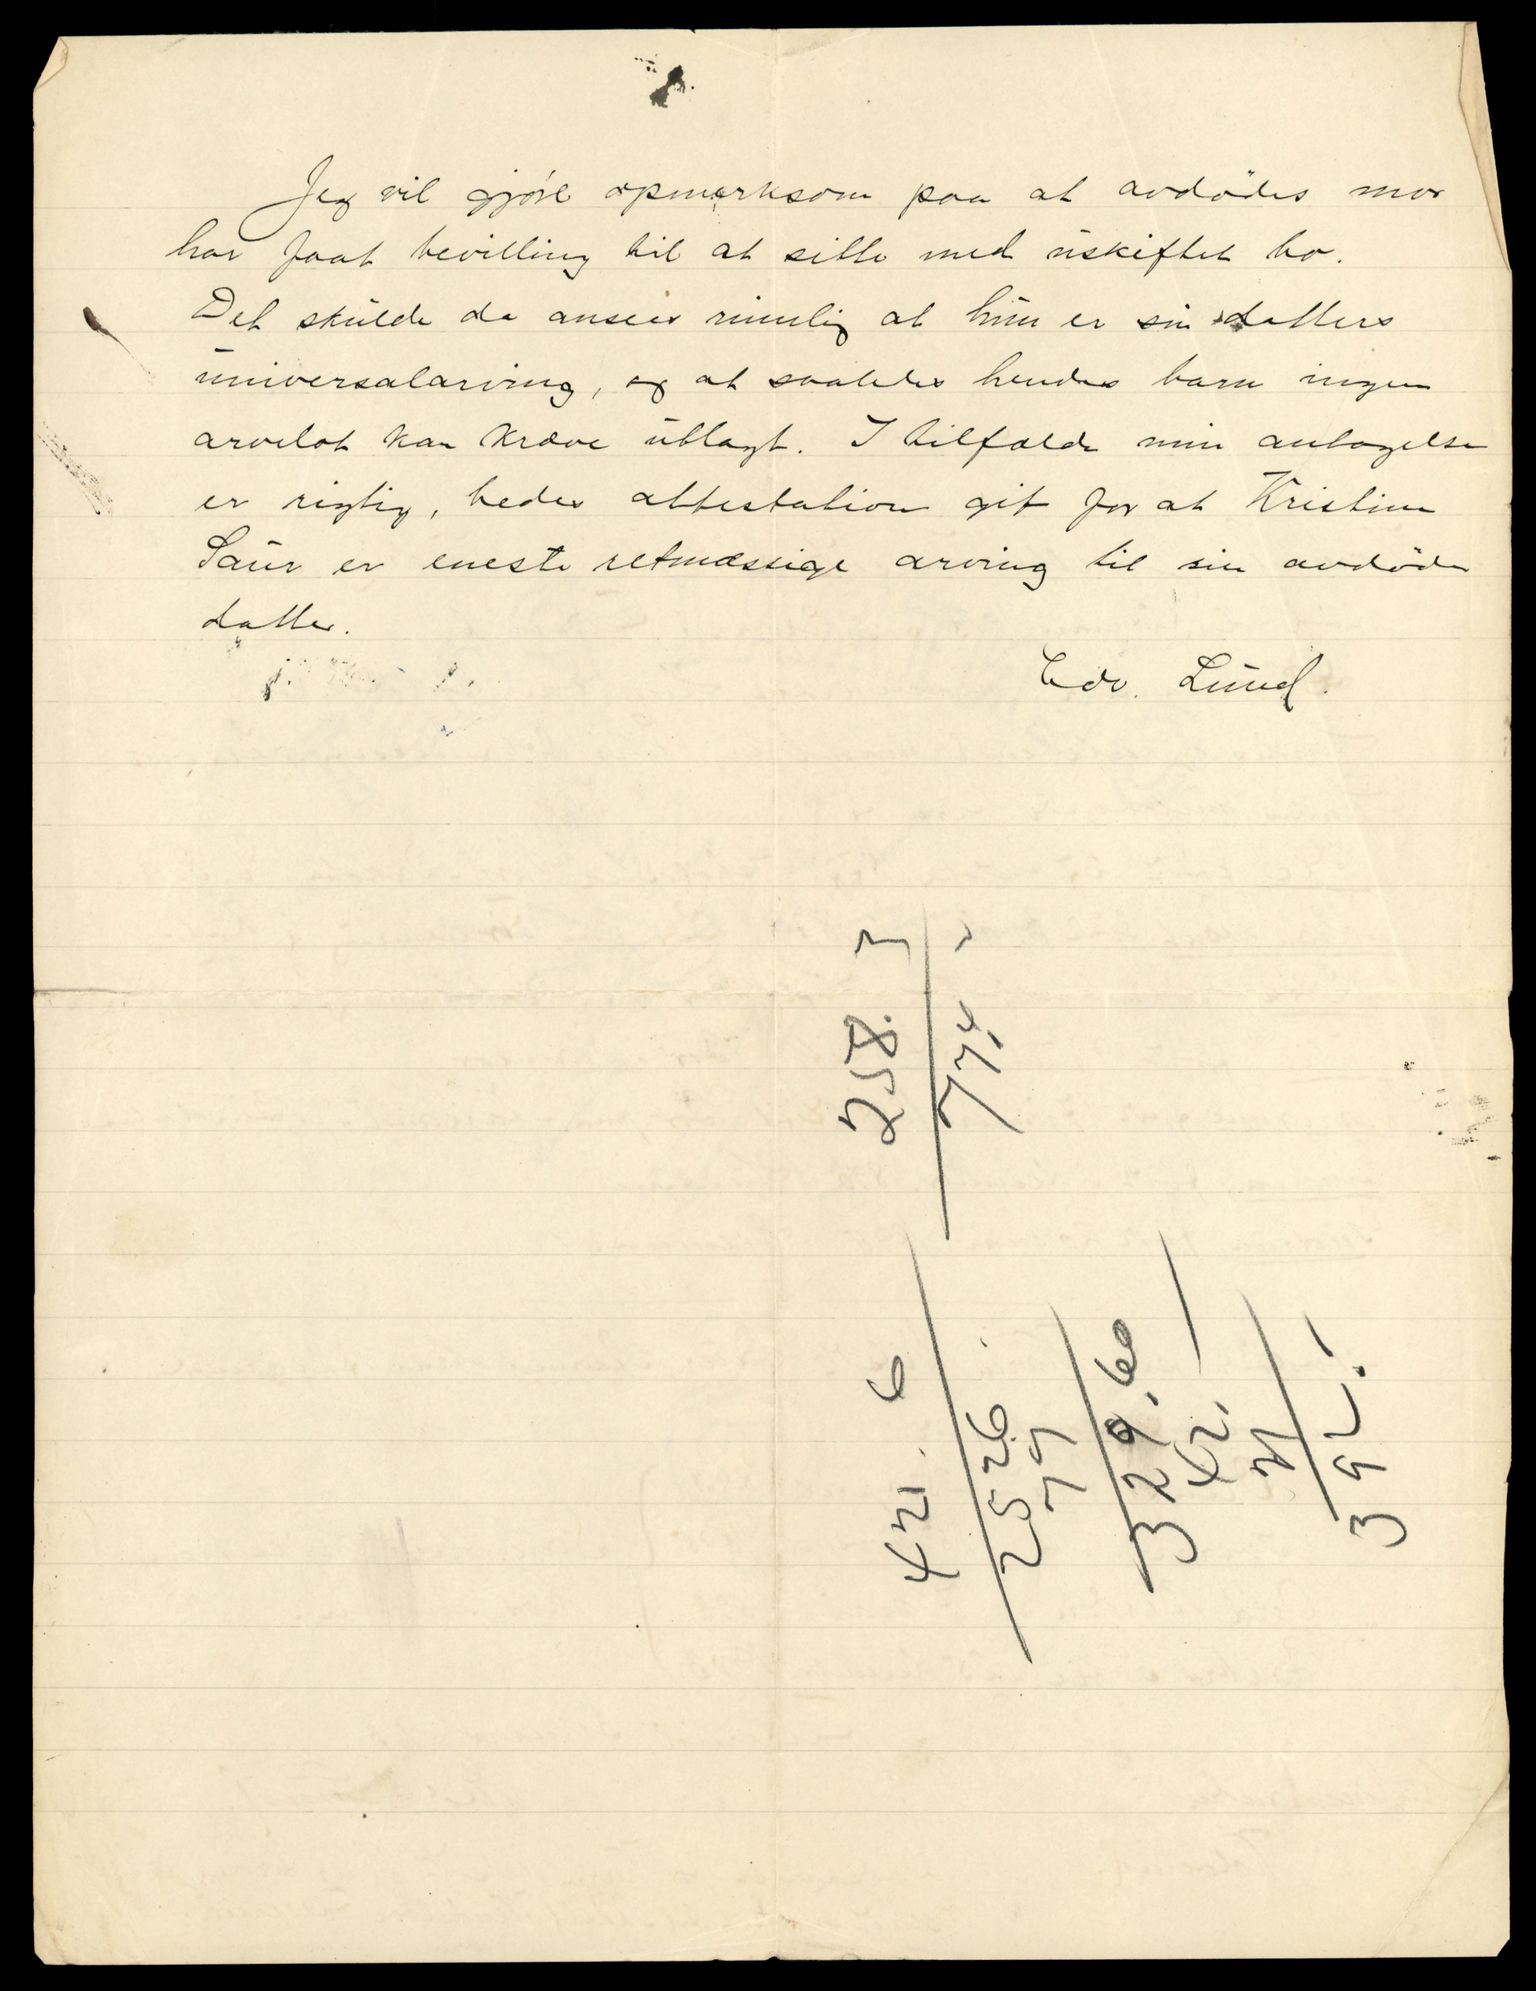 Jeg vil gjöre opmerksom paa at avdödes mor
har faat bevilling til at sitte med uskiftet bo.
Det skulde da ansees rimelig at hun er sin datters
universalarving, og at saaledes hendes barn ingen
arvelot kan kræve utlagt. I tilfælde min antagelse
er rigtig, bedes attestation git for at Kristine
Saur er eneste retmæssige arving til sin avdöde
datter.
Edv. Lund.
258. 3
774,
421. 6
2526
77
329.60
42,
21
392.